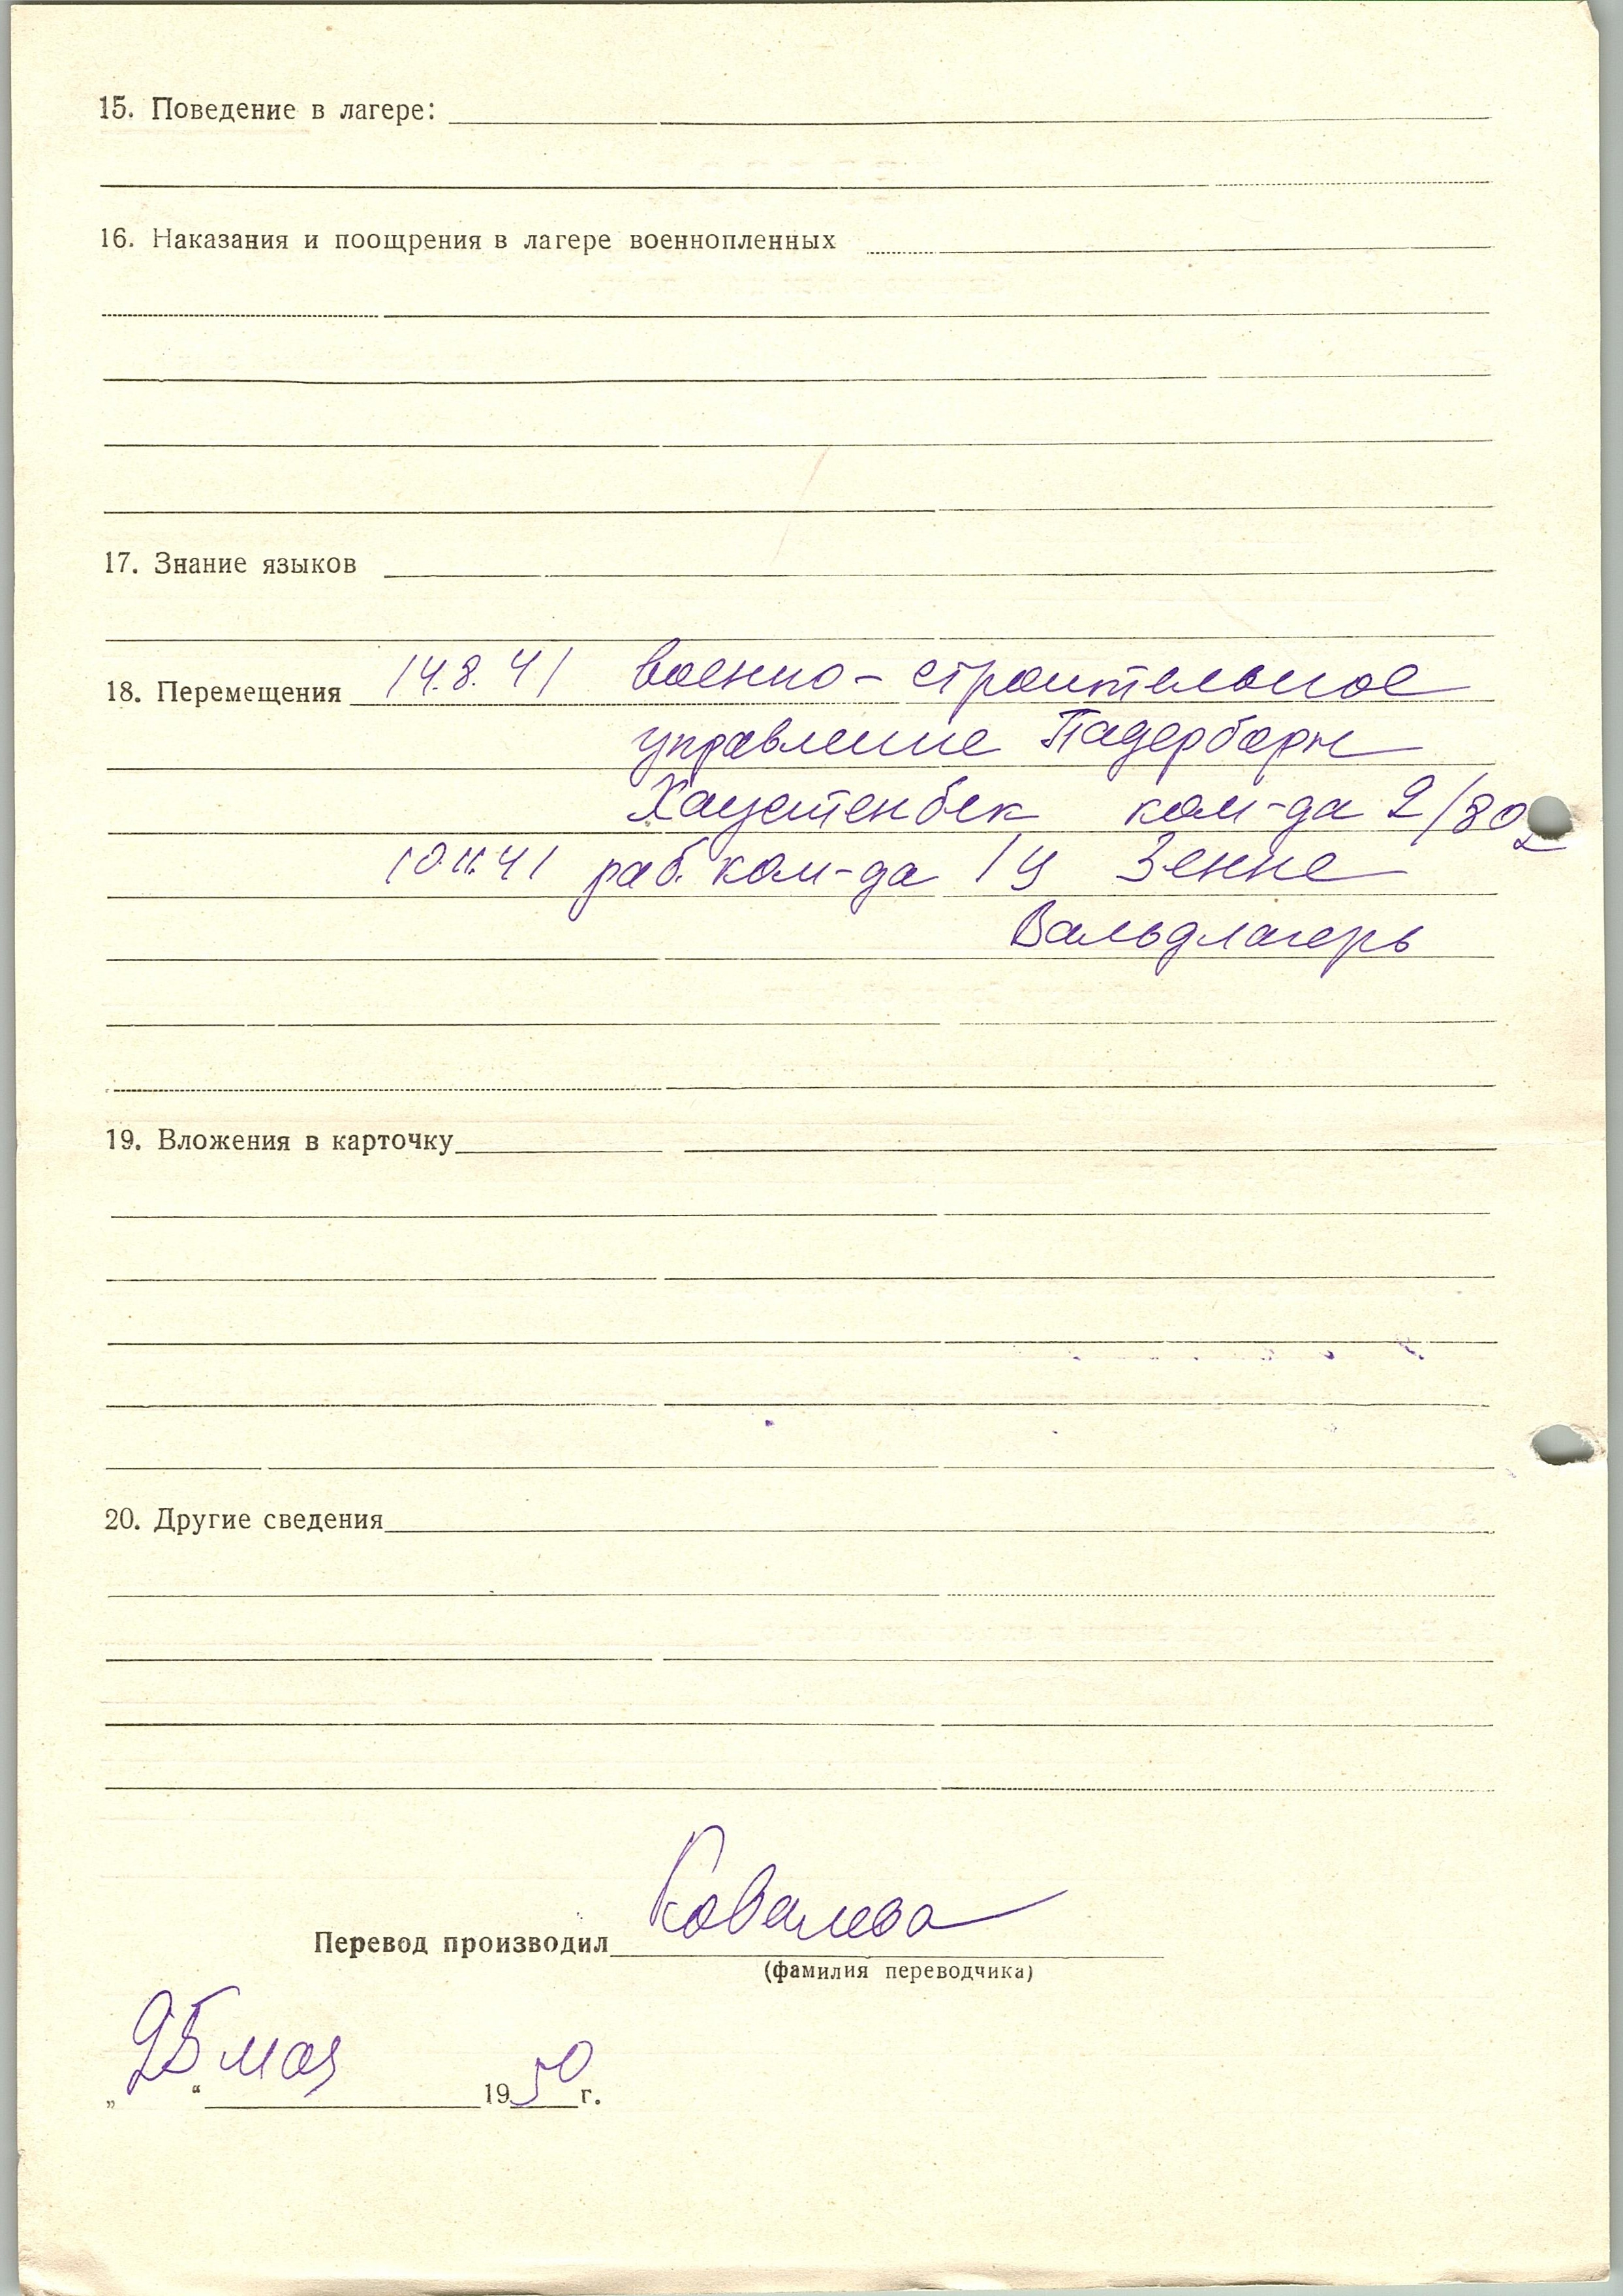 15. Поведение в лагере:
16. Наказания и поощрения в лагере военнопленных
17. Знание языков
18. Перемещения 14.8.41 военно-строительное
управление Падерборн
Хаустенбек ком-да 2/802
10.11.41 раб. ком-да Зенне
Вальдлагерь
19. Вложения в карточку
20. Другие сведения
Перевод производил Ковалева
(фамилия переводчика)
„25“ мая 1950 г.